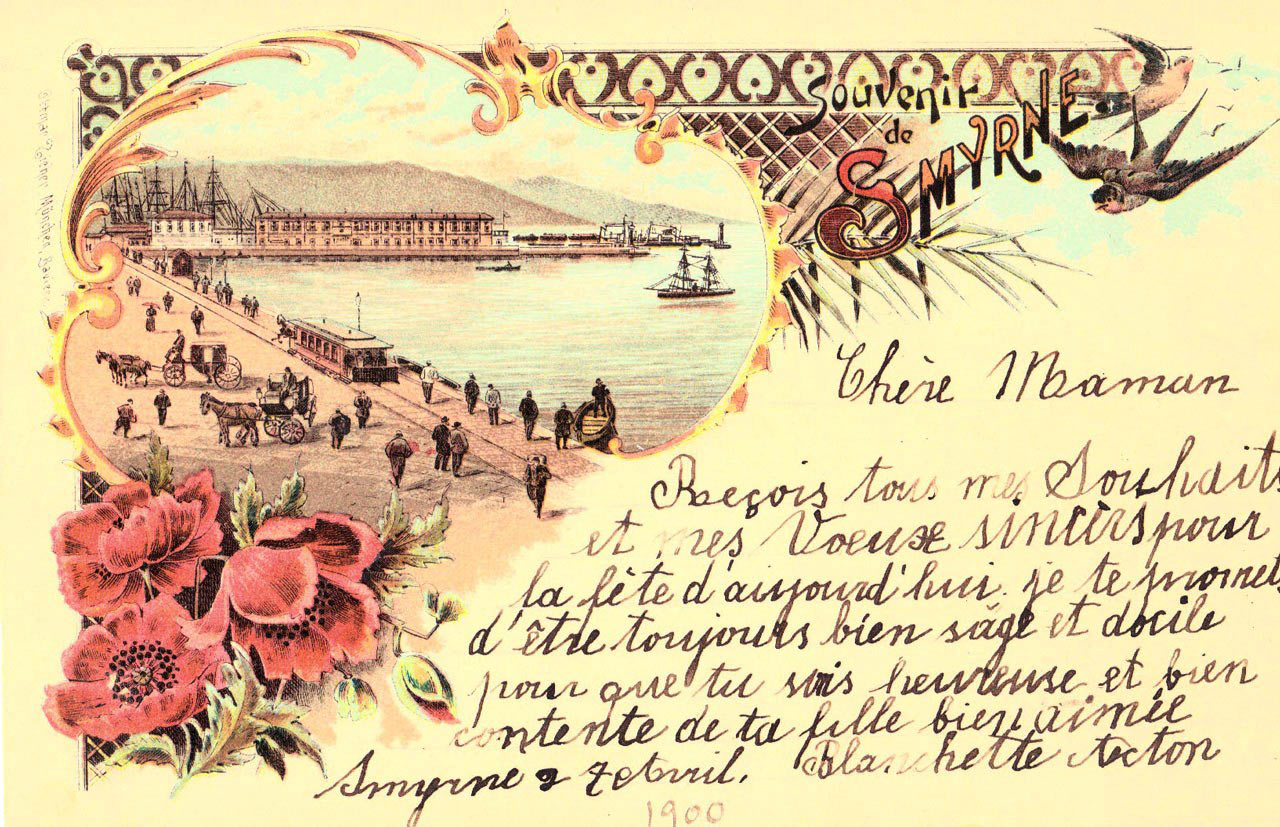 Souvenir
de
SMYRNE
Chère Maman
Reçois tous mes Souhaits
et mes Voeuxe sincèrs pour
la fête d'aujourd'hui. je te promet
d'être toujours bien sage et docile
pour que tu sois heureuse et bien
contente de ta fille bien aimée
Smyrne Avril. Blanchette Acton
1900
München